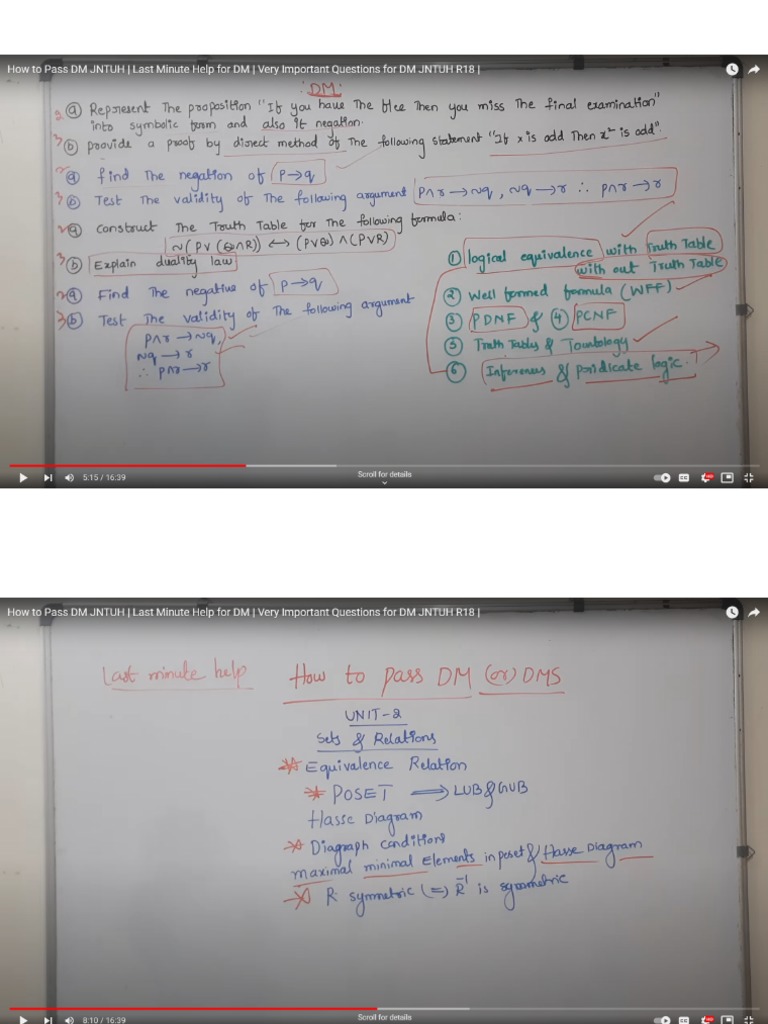 How to Pass DM JNTUH | Last Minute Help for DM | Very Important Questions for DM JNTUH R18 |
: DM :
2 ⓐ Represent The proposition "If you have The blee Then you miss The final examination"
into symbolic form and also it negation.
3 ⓑ provide a proof by disect method of The following statement "If x is odd Then x² is odd".
2 ⓐ find The negation of p→q
3 ⓑ Test The validity of The following argument p∧r→~q, ~q→r ∴ p∧r→r
2 ⓐ Construct The Truth Table for The following formula:
~(P∨(Q∧R)) ↔ (P∨Q)∧(P∨R)
3 ⓑ Explain duality law
2 ⓐ Find The negative of p→q
3 ⓑ Test The validity of The following argument
p∧r→~q,
~q→r
∴ p∧r→r
① logical equivalence with Truth Table
with out Truth Table
② Well formed formula (WFF)
③ PDNF & ④ PCNF
⑤ Truth Tables & Tountology
⑥ Inferences & Pridicate logic.
Scroll for details
5:15 / 16:39
CC
How to Pass DM JNTUH | Last Minute Help for DM | Very Important Questions for DM JNTUH R18 |
Last minute help How to pass DM (or) DMS
UNIT-2
Sets & Relations
Equivalence Relation
POSET ⟹ LUB & GUB
Hasse Diagram
Diagraph conditions
maximal minimal Elements in poset & Hasse Diagram
R symmetric (=) R⁻¹ is symmetric
Scroll for details
8:10 / 16:39
CC